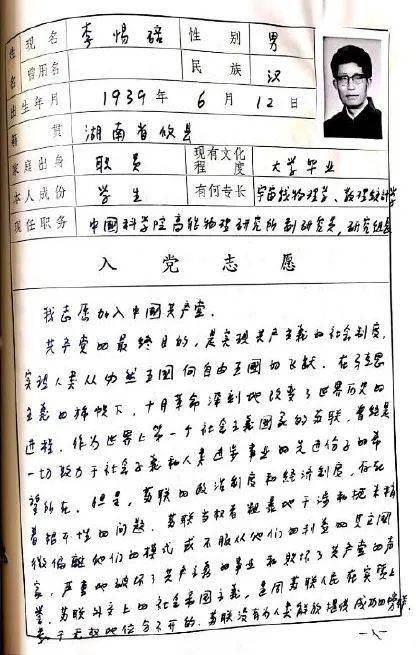 姓名 现名 李惕碚 性别 男
曾用名 民族 汉
出生年月 1939年6月12日
籍贯 湖南省攸县
家庭出身 职员 现有文化程度 大学毕业
本人成份 学生 有何专长 宇宙线物理学、数理统计学
现任职务 中国科学院高能物理研究所副研究员,研究组长
入党志愿
我志愿加入中国共产党.
共产党的最终目的,是实现共产主义的社会制度,
实现人类从必然王国向自由王国的飞跃.在马克思
主义的旗帜下,十月革命深刻地改变了世界历史的
进程.作为世界上第一个社会主义国家的苏联,曾经是
一切致力于社会主义和人类进步事业的先进份子的希
望所在.但是,苏联的政治制度和经济制度,存在
着根本性的问题.苏联当权者粗暴地干涉和
偏离他们的模式或不服从他们的利益的兄立国
家,严重地破坏了共产主义的事业和败坏了共产党的声
誉.苏联外交上的社会帝国主义,是同苏联人民在实质上
处于无权地位分不开的.苏联没有为人类解放提供成功的榜样.